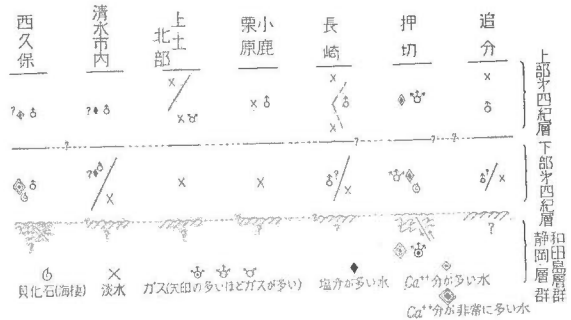 西久保
清水市内
上土北部
小鹿
栗原
長崎
押切
追分
上部第四紀層
下部第四紀層
和田島層群
静岡層群
貝化石(海棲)
淡水
ガス(矢印の多いほどガスが多い)
塩分が多い水
Ca⁺⁺分が多い水
Ca⁺⁺分が非常に多い水